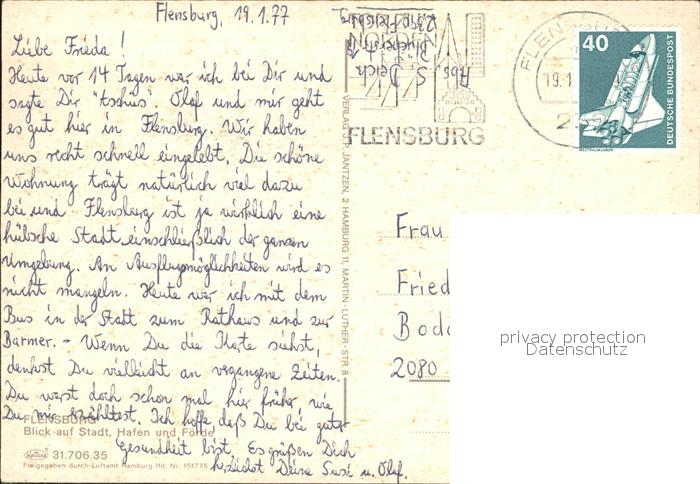 Flensburg, 19.1.77
Liebe Frieda!
Heute vor 14 Tagen war ich bei Dir und
sagte Dir "tschüs". Olaf und mir geht
es gut hier in Flensburg. Wir haben
uns recht schnell eingelebt. Die schöne
Wohnung trägt natürlich viel dazu
bei und Flensburg ist ja wirklich eine
hübsche Stadt einschließlich der ganzen
Umgebung. An Ausflugsmöglichkeiten wird es
nicht mangeln. Heute war ich mit dem
Bus in der Stadt zum Rathaus und zur
Barmer. - Wenn Du die Karte siehst,
denkst Du vielleicht an vergangene Zeiten.
Du warst doch schon mal hier früher wie
Du mir erzähltest. Ich hoffe, daß Du bei guter
Gesundheit bist. Es grüßen Dich
herzlichst Deine Susi u. Olaf.
FLENSBURG
Blick auf Stadt, Hafen und Förde
Krüger 31.706.35
Freigegeben durch Luftamt Hamburg lfd. Nr. 151775
VERLAG J.P. JANTZEN, 2 HAMBURG 11, MARTIN-LUTHER-STR. 8
Abs. S. Deich
2390 Flensburg
NORDEN
FLENSBURG
FLENSBURG
19.1
40
DEUTSCHE BUNDESPOST
WELTRAUMLABOR
Frau
Fried
Bod
2080
privacy protection
Datenschutz